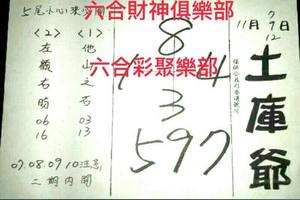 5尾小心來
六合財神俱樂部
六合彩聚樂部
11月 7 9 12
土庫爺
8
1 4
3
597
<1>
他
山
之
石
03
13
<2>
左
嶺
右
的
06
16
07.08.09.10注意
二期內開